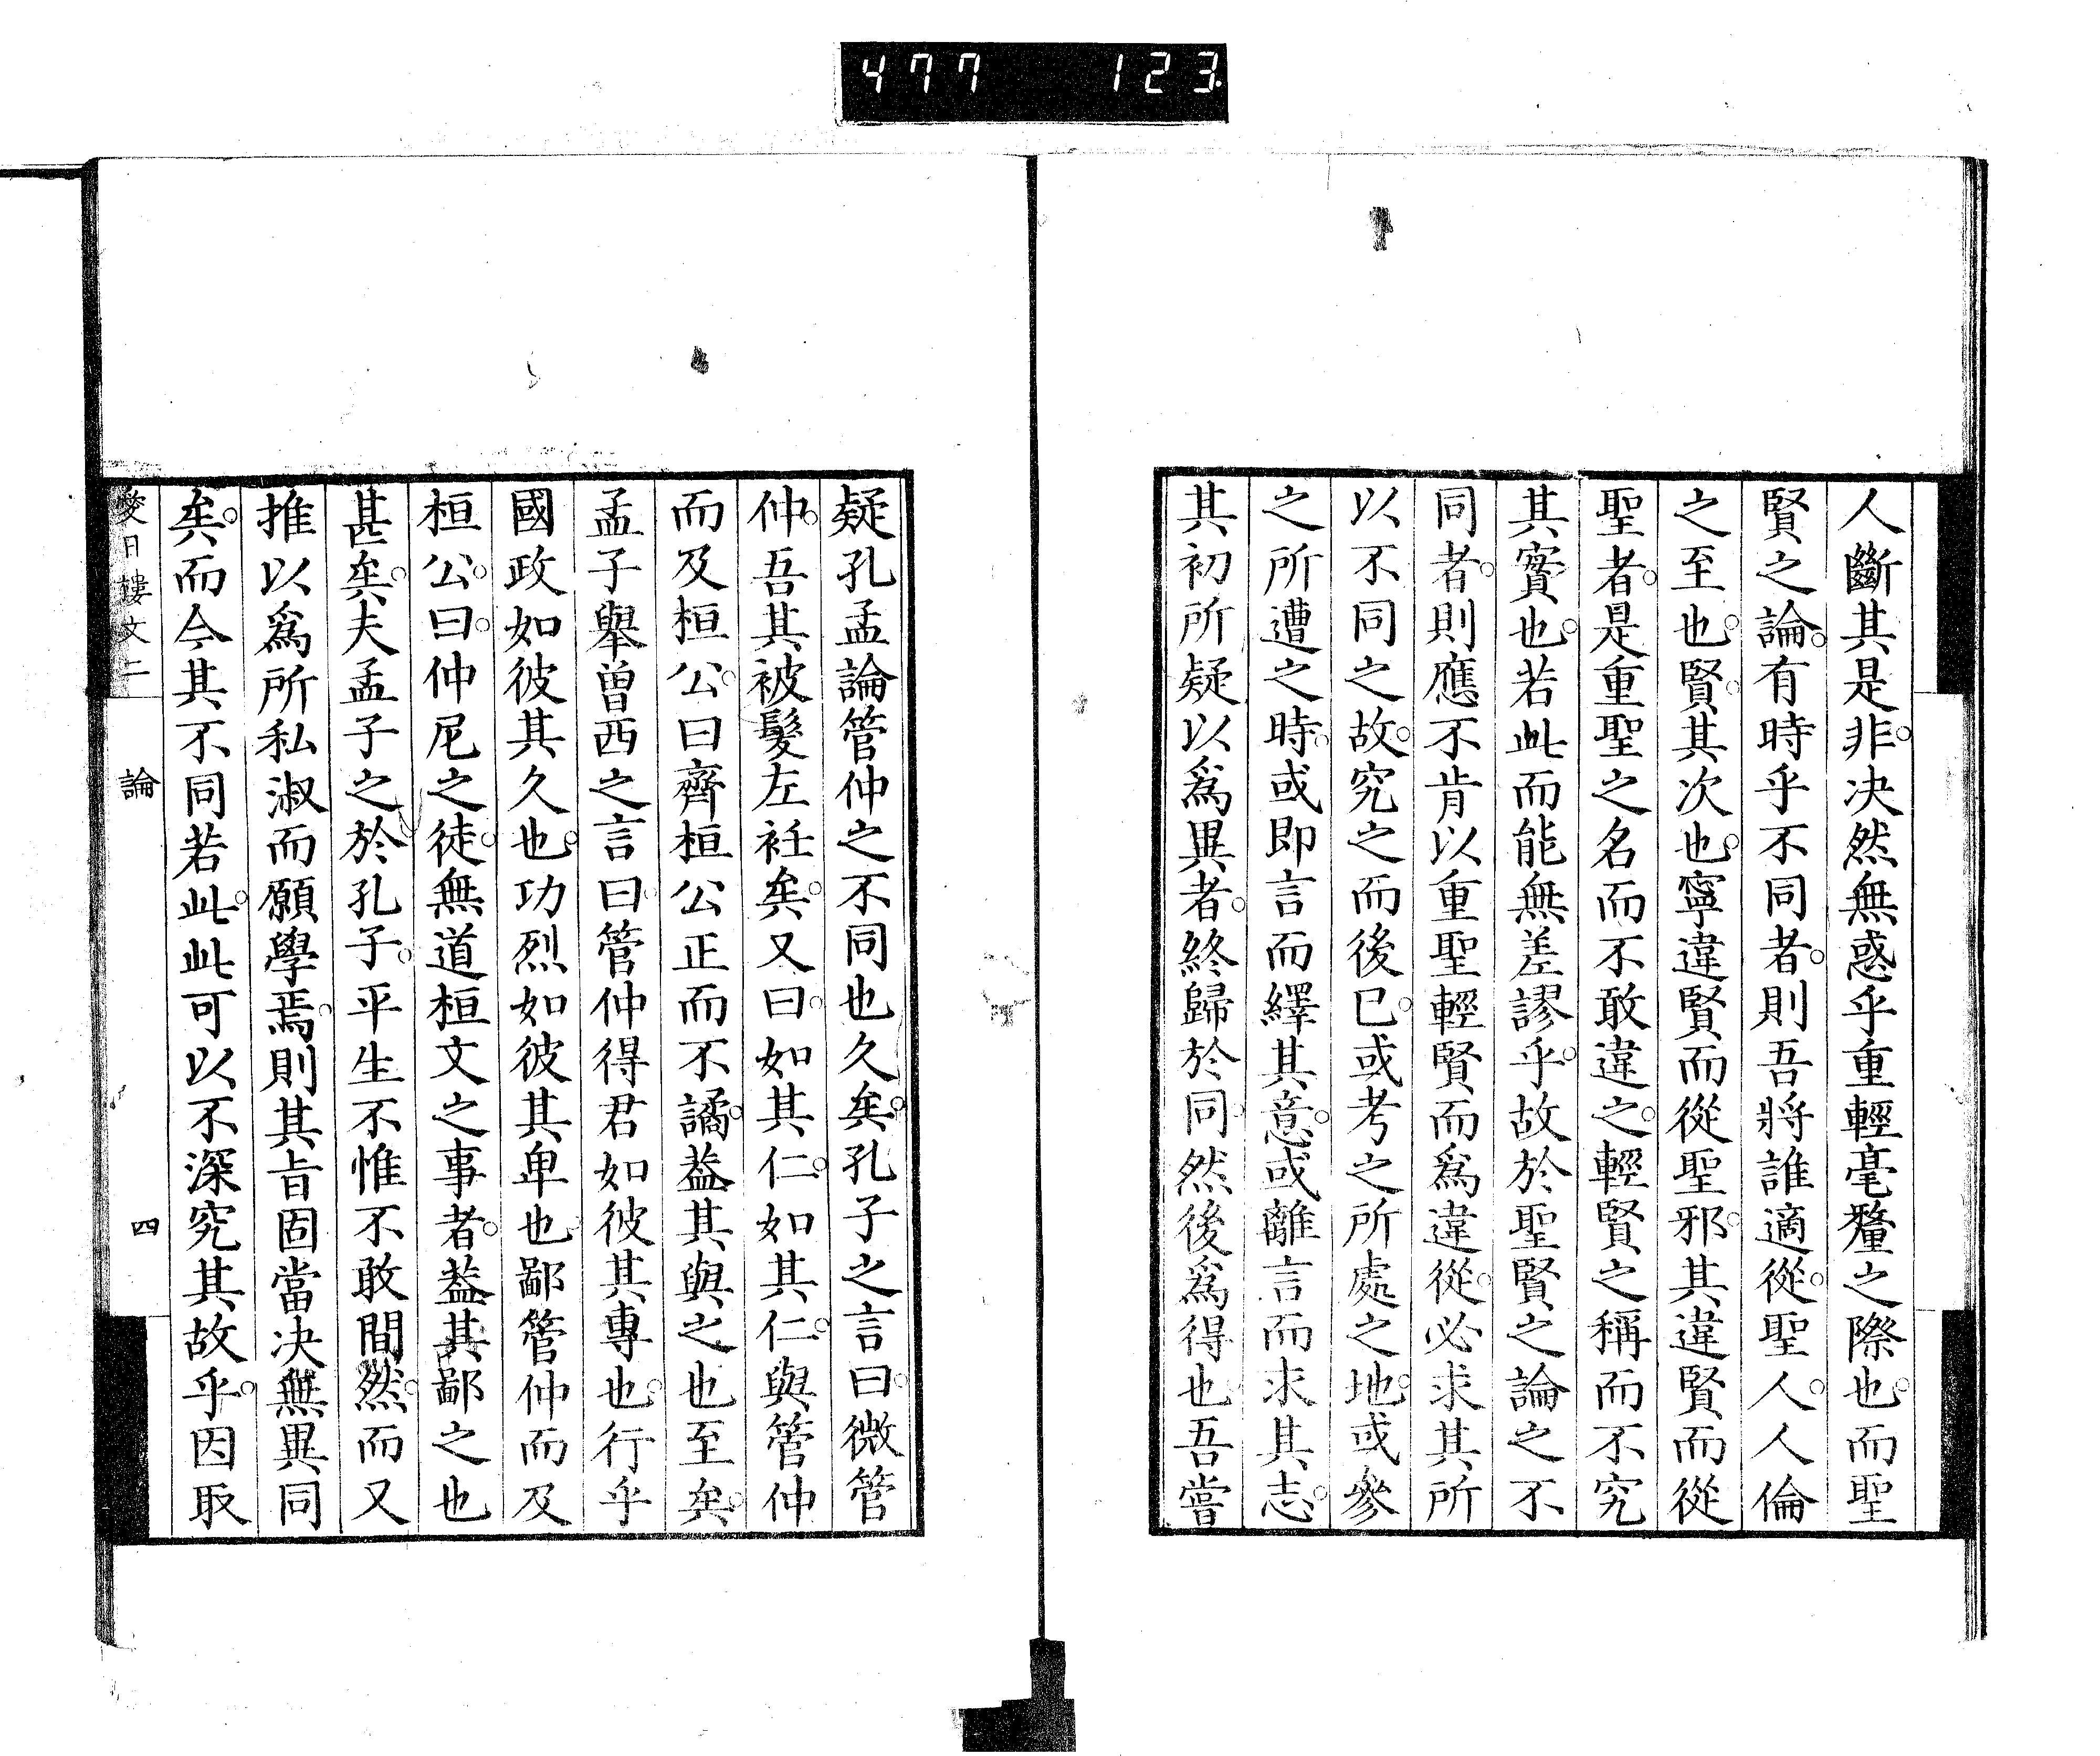 477 123
人斷其是非。决然無惑乎重輕毫釐之際也。而聖
賢之論。有時乎不同者。則吾將誰適從。聖人。人倫
之至也。賢。其次也。寧違賢而從聖邪。其違賢而從
聖者。是重聖之名而不敢違之。輕賢之稱而不究
其實也。若此而能無差謬乎。故於聖賢之論之不
同者。則應不肯以重聖輕賢而爲違從。必求其所
以不同之故。究之而後已。或考之所處之地。或參
之所遭之時。或即言而繹其意。或離言而求其志。
其初所疑以爲異者。終歸於同。然後爲得也吾嘗
疑孔孟論管仲之不同也久矣。孔子之言曰。微管
仲。吾其被髮左衽矣。又曰。如其仁。如其仁。與管仲
而及桓公。曰齊桓公正而不譎。葢其與之也至矣。
孟子舉曾西之言曰。管仲得君如彼其專也。行乎
國政如彼其久也。功烈如彼其卑也。鄙管仲而及
桓公。曰。仲尼之徒。無道桓文之事者。葢其鄙之也
甚矣。夫孟子之於孔子。平生不惟不敢間然。而又
推以爲所私淑而願學焉。則其旨固當决無異同
矣。而今其不同若此。此可以不深究其故乎。因取
日樓文二 論 四